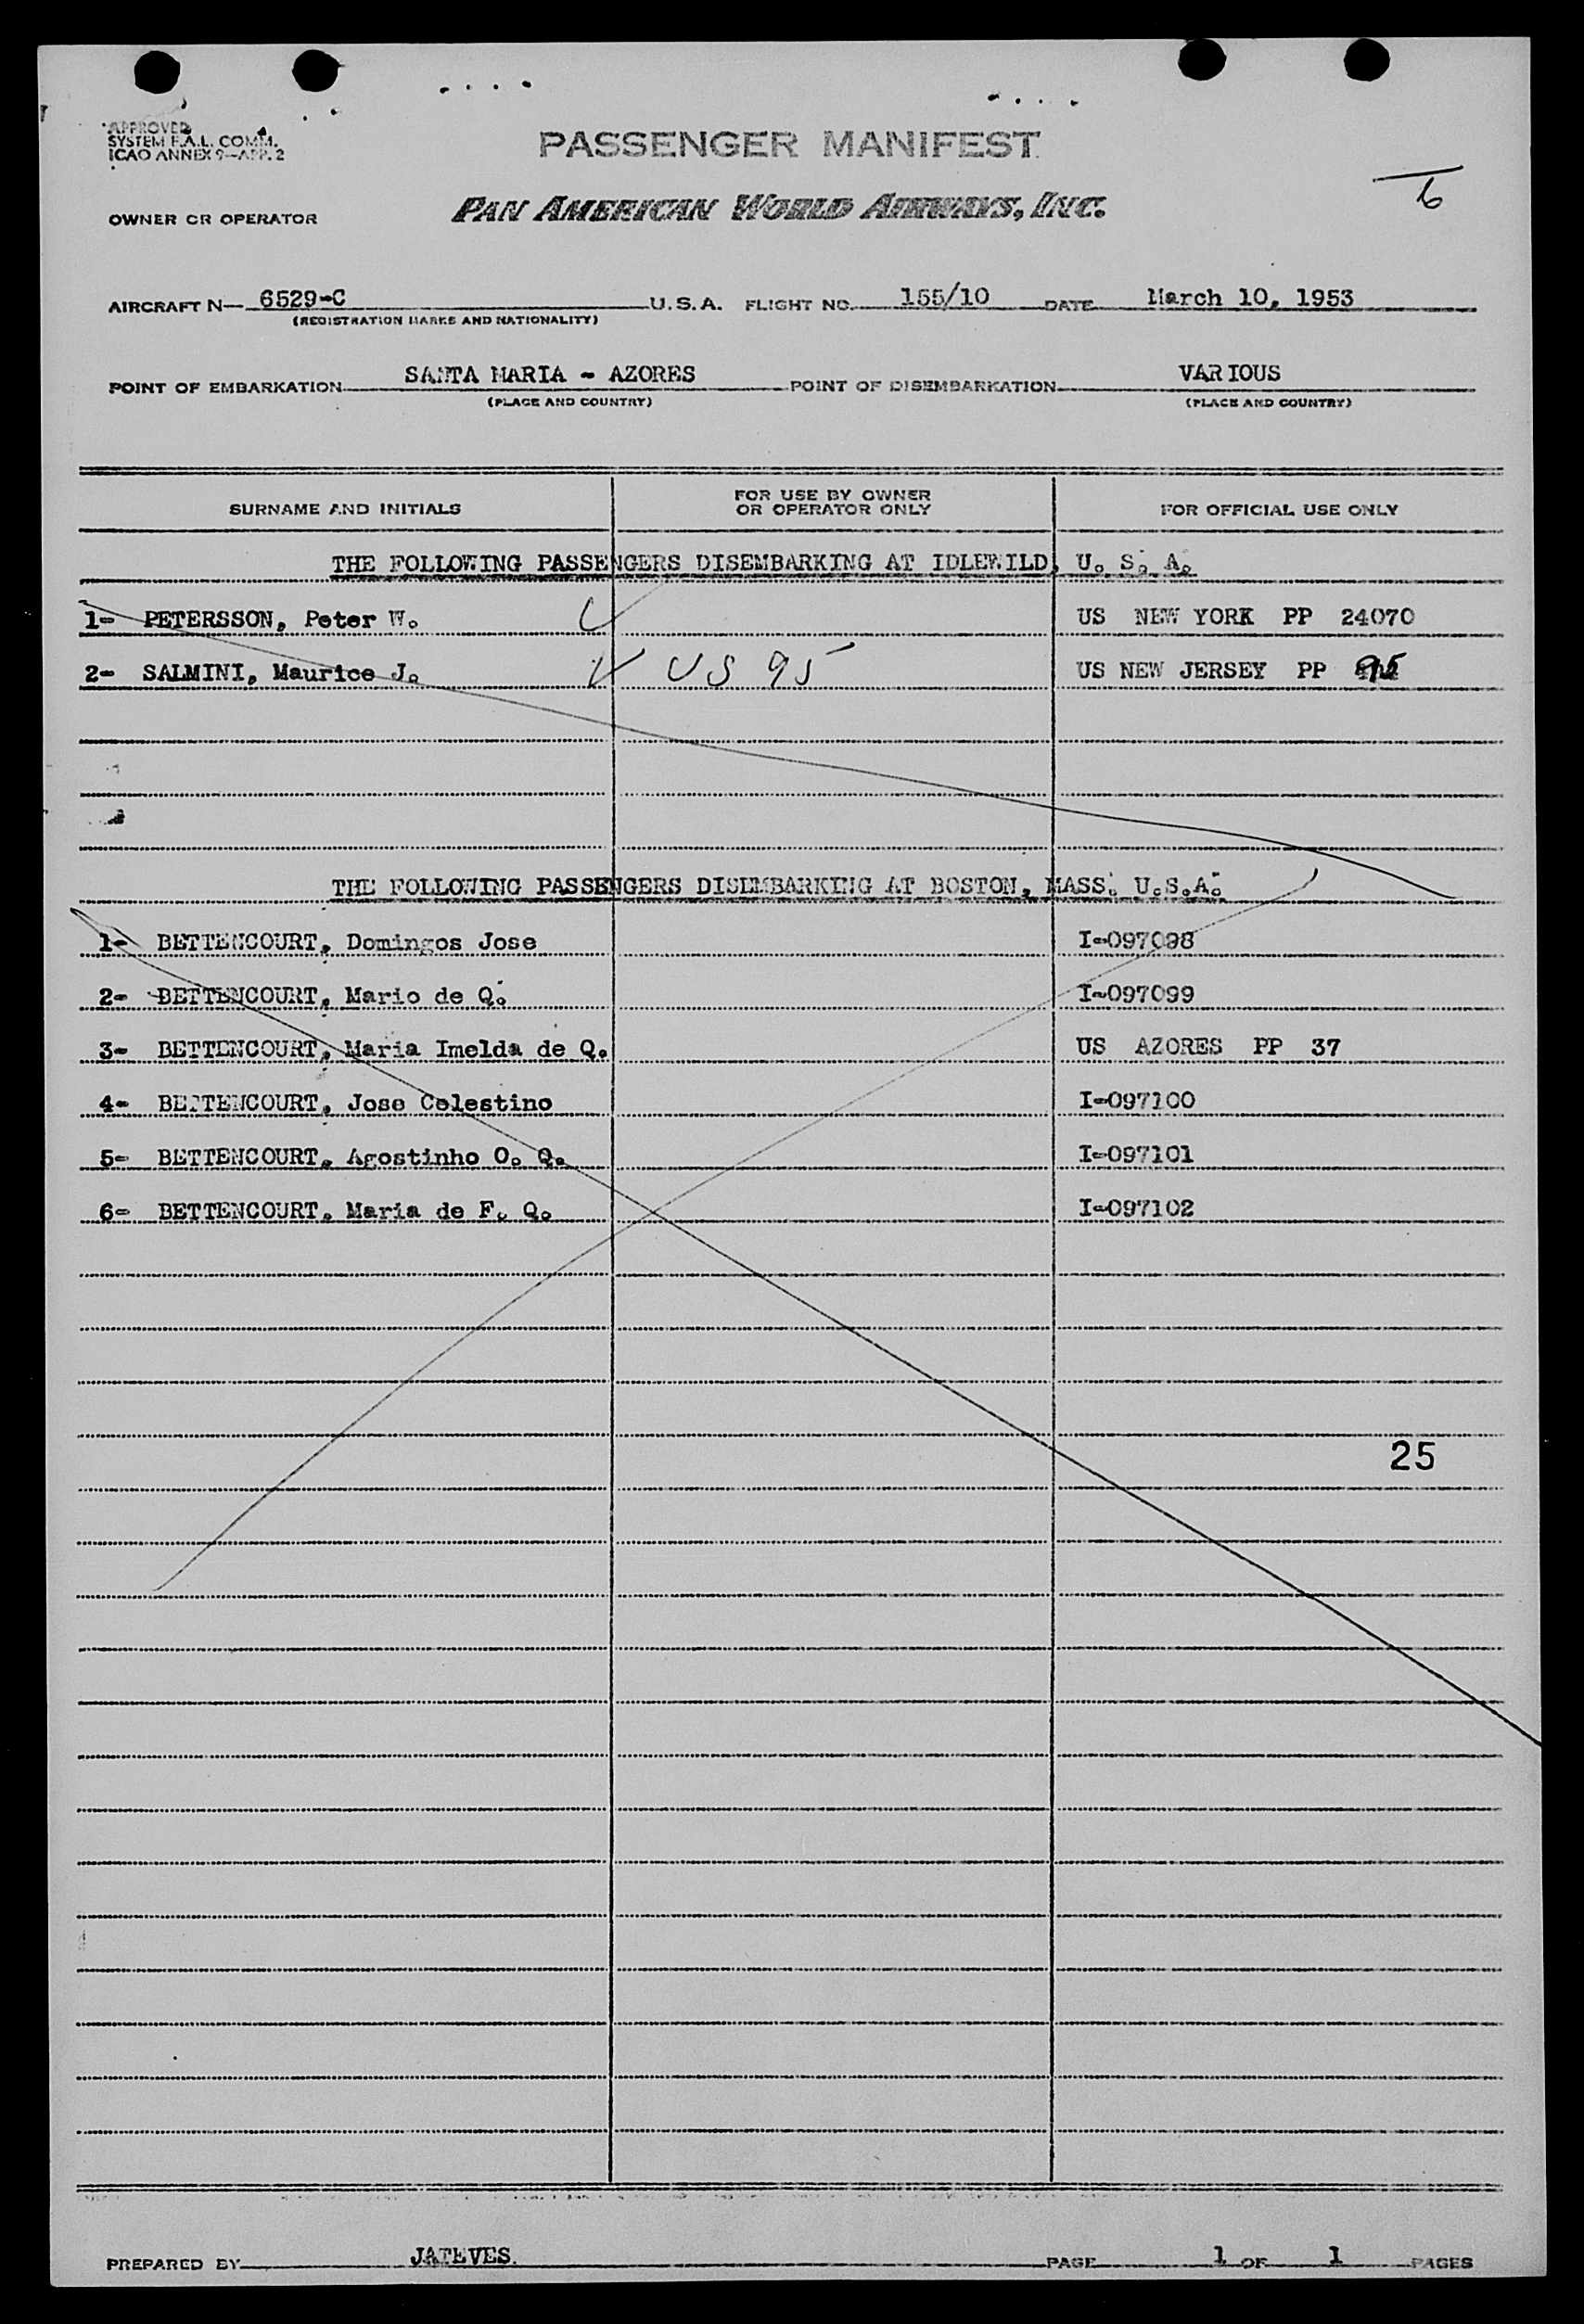 APPROVED
SYSTEM F.A.L. COMM.
ICAO ANNEX 9—APP. 2
PASSENGER MANIFEST
6
OWNER OR OPERATOR PAN AMERICAN WORLD AIRWAYS, INC.
AIRCRAFT N— 6529-C U.S.A. FLIGHT NO. 155/10 DATE March 10, 1953
(REGISTRATION MARKS AND NATIONALITY)
POINT OF EMBARKATION SANTA MARIA - AZORES POINT OF DISEMBARKATION VARIOUS
(PLACE AND COUNTRY) (PLACE AND COUNTRY)
SURNAME AND INITIALS FOR USE BY OWNER OR OPERATOR ONLY FOR OFFICIAL USE ONLY
THE FOLLOWING PASSENGERS DISEMBARKING AT IDLEWILD, U. S. A.
1- PETERSSON, Peter W. US NEW YORK PP 24070
2- SALMINI, Maurice J. US 95 US NEW JERSEY PP 95
THE FOLLOWING PASSENGERS DISEMBARKING AT BOSTON, MASS. U.S.A.
1- BETTENCOURT, Domingos Jose I-097098
2- BETTENCOURT, Mario de Q. I-097099
3- BETTENCOURT, Maria Imelda de Q. US AZORES PP 37
4- BETTENCOURT, Jose Celestino I-097100
5- BETTENCOURT, Agostinho O. Q. I-097101
6- BETTENCOURT, Maria de F. Q. I-097102
25
PREPARED BY JATEVES. PAGE 1 OF 1 PAGES